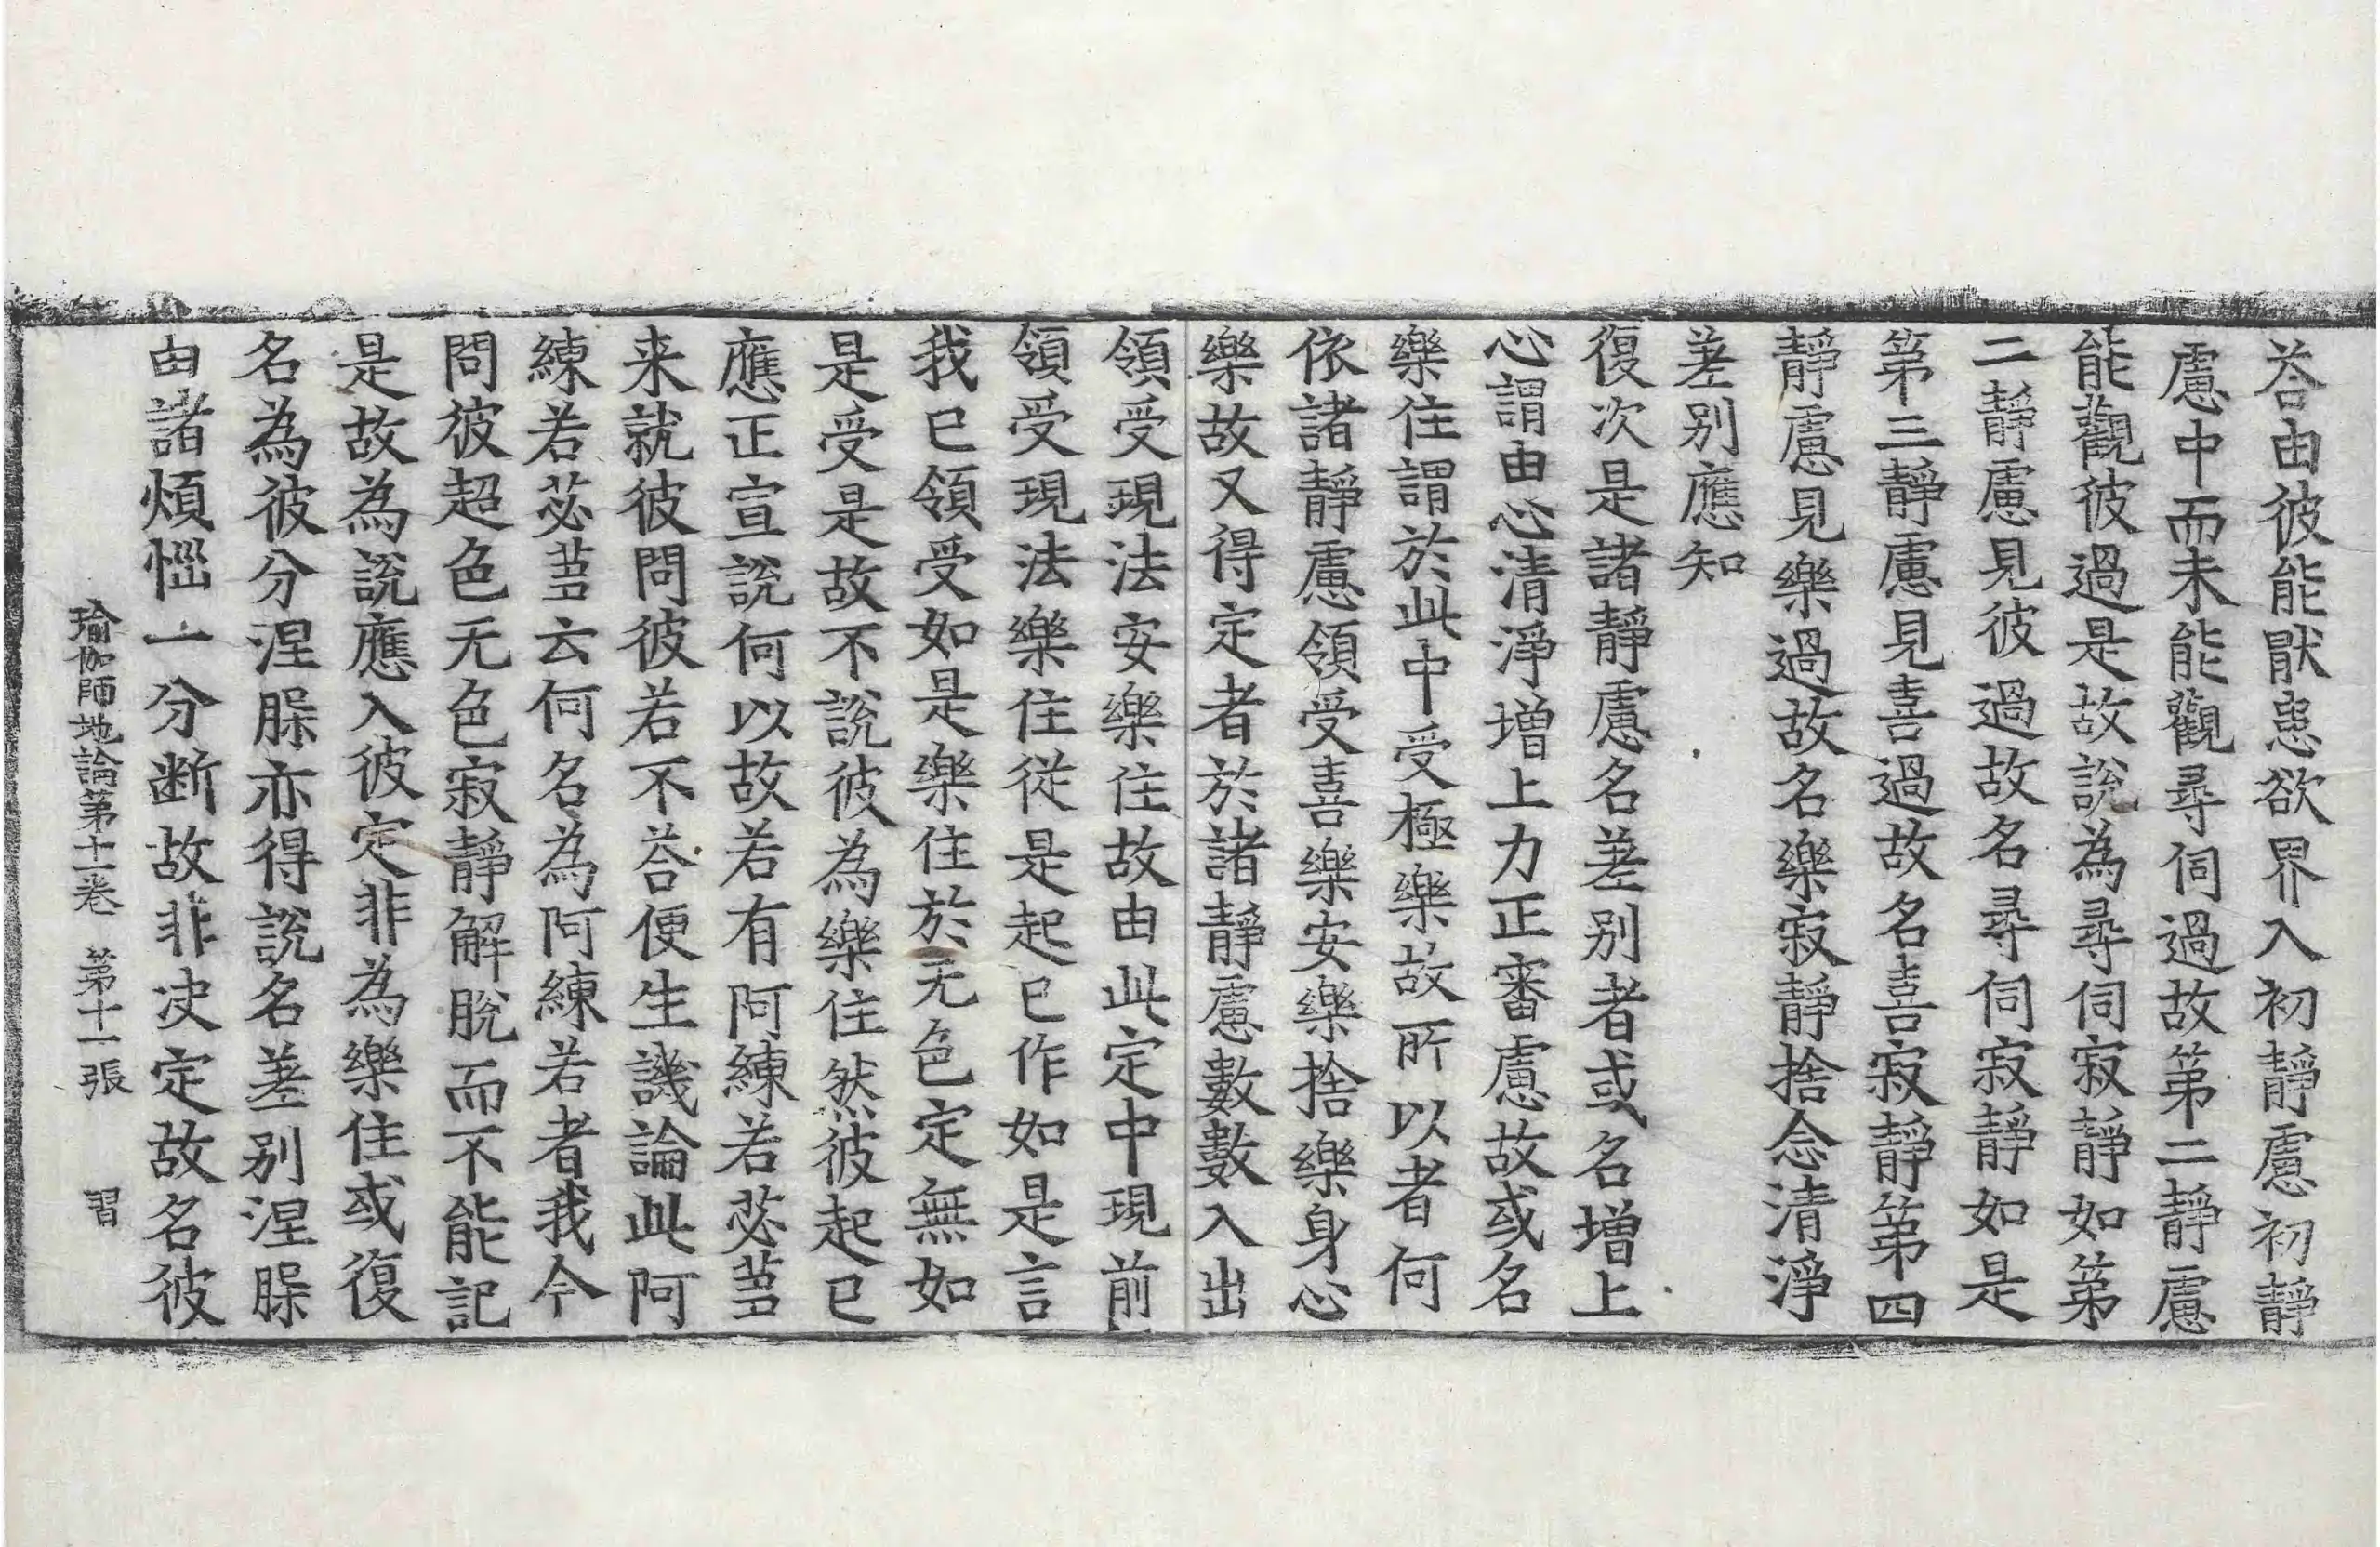 荅由彼能猒患欲界入初靜慮初靜
慮中而未能觀尋伺過故第二靜慮
能觀彼過是故說為尋伺寂靜如第
二靜慮見彼過故名尋伺寂靜如是
第三靜慮見喜過故名喜寂靜第四
靜慮見樂過故名樂寂靜捨念清淨
差別應知
復次是諸靜慮名差別者或名增上
心謂由心清淨增上力正審慮故或名
樂住謂於此中受極樂故所以者何
依諸靜慮領受喜樂安樂捨樂身心
樂故又得定者於諸靜慮數數入出
領受現法安樂住故由此定中現前
領受現法樂住從是起已作如是言
我已領受如是樂住於无色定無如
是受是故不說彼為樂住然彼起已
應正宣說何以故若有阿練若苾蒭
来就彼問彼若不荅便生譏論此阿
練若苾蒭云何名為阿練若者我今
問彼超色无色寂靜解脫而不能記
是故為說應入彼定非為樂住或復
名為彼分涅槃亦得說名差別涅槃
由諸煩惱一分断故非决定故名彼
瑜伽師地論第十一卷　第十一張　習